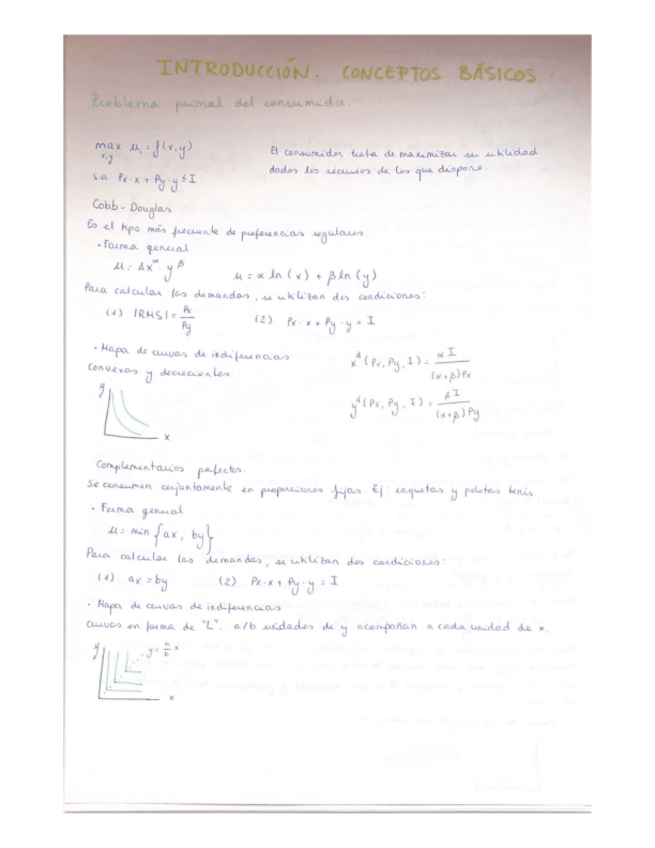 INTRODUCCIÓN. CONCEPTOS BÁSICOS
Problema primal del consumidor.
max u = f(x,y)
x,y
s.a Px·x + Py·y ≤ I
El consumidor trata de maximizar su utilidad
dados los recursos de los que dispone.
Cobb-Douglas
Es el tipo más frecuente de preferencias regulares.
· Forma general
u = Ax^α · y^β     u = α ln(x) + β ln(y)
Para calcular las demandas, se utilizan dos condiciones:
(1) |RMS| = Px/Py     (2) Px·x + Py·y = I
· Mapa de curvas de indiferencias
convexas y decrecientes.
x^d (Px, Py, I) = αI/(α+β)Px
y^d (Px, Py, I) = βI/(α+β)Py
y
x
Complementarios perfectos.
Se consumen conjuntamente en proporciones fijas. Ej: raquetas y pelotas tenis.
· Forma general
u = min {ax, by}
Para calcular las demandas, se utilizan dos condiciones:
(1) ax = by     (2) Px·x + Py·y = I
· Mapa de curvas de indiferencias
curvas en forma de "L". a/b unidades de y acompañan a cada unidad de x.
y
y = a/b x
x